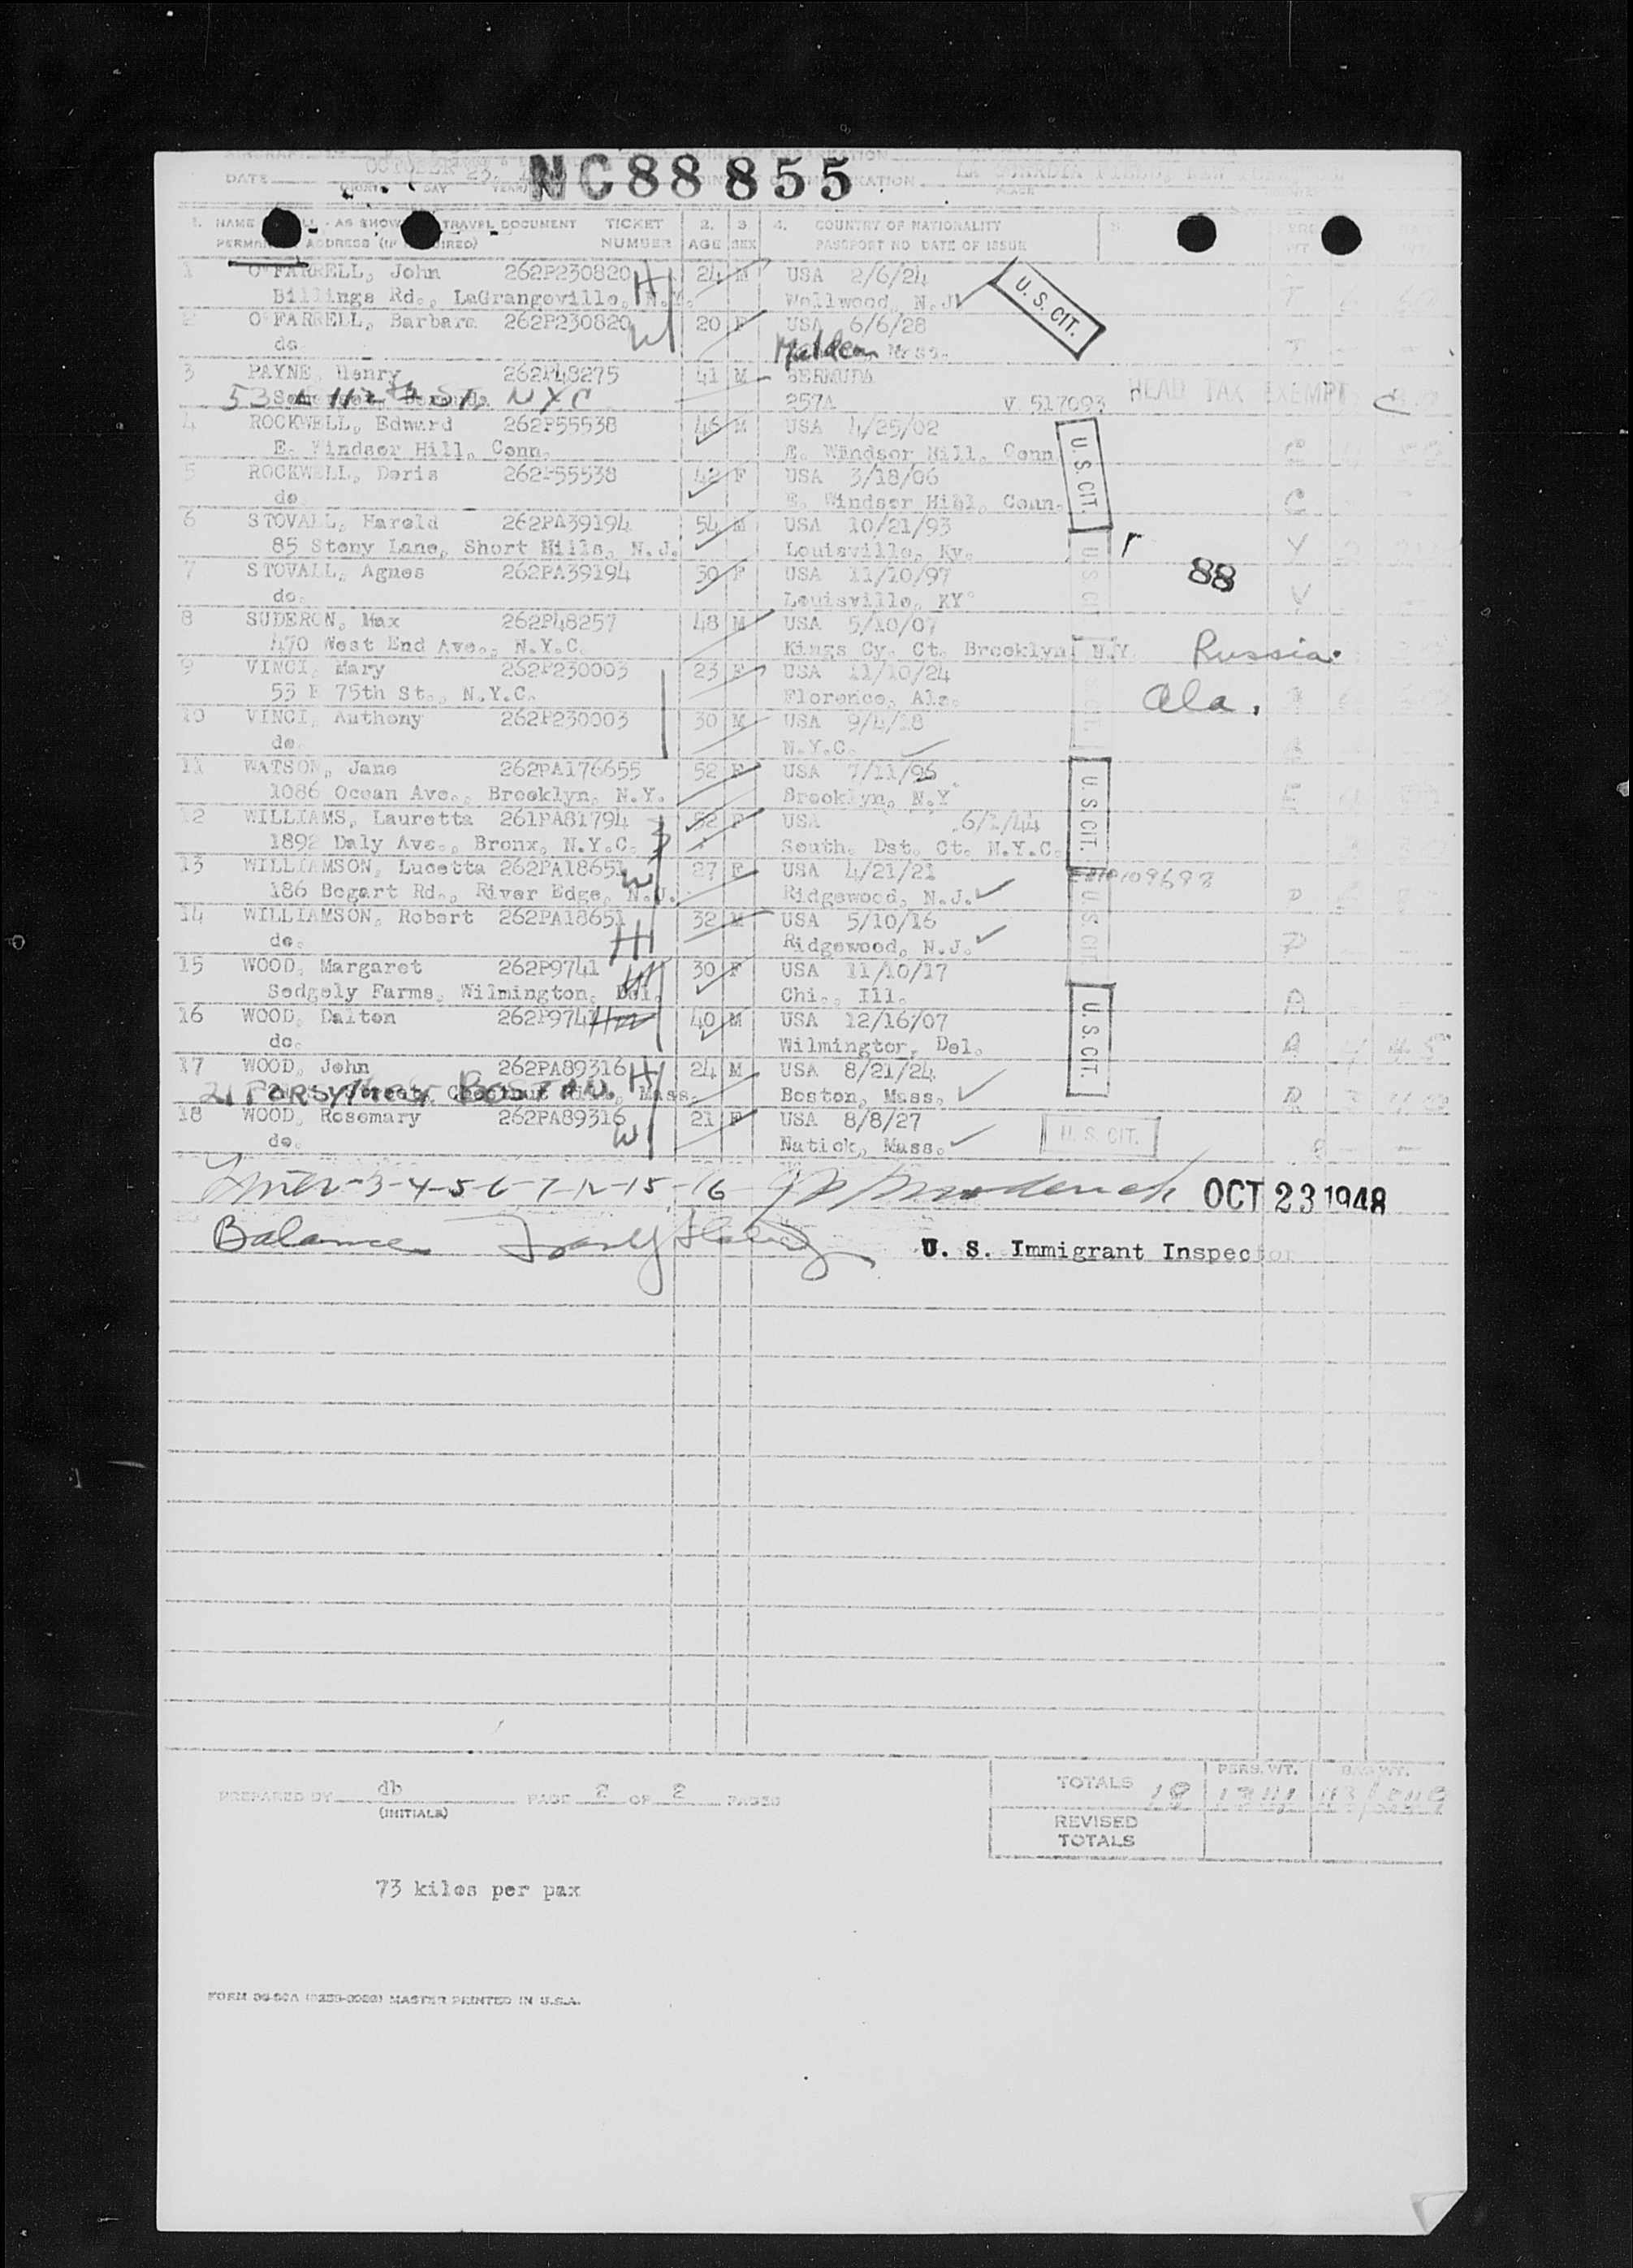 OCTOBER 23,
NC88855
LA GUARDIA FIELD, NEW YORK
DATE
1. NAME AS SHOW TRAVEL DOCUMENT TICKET 2. 3 4. COUNTRY OF NATIONALITY
ADDRESS (IF NUMBER AGE SEX PASSPORT NO DATE OF ISSUE
1 O'FARRELL, John 262P230820 H 24 M USA 2/6/24
Billings Rd., LaGrangeville, N.Y. Wellwood, N.J. U. S. CIT.
2 O'FARRELL, Barbara 262P230820 W 20 F USA 6/6/28
do. Malden Mass.
3 PAYNE, Henry 262P48275 41 M BERMUDA HEAD TAX EXEMPT
53 112th St NYC 257A V 517093
4 ROCKWELL, Edward 262P55538 46 M USA 4/25/02
E. Windsor Hill, Conn. E. Windsor Hill, Conn U. S. CIT.
5 ROCKWELL, Doris 262P55538 42 F USA 3/18/06 C
do E. Windsor Hill, Conn.
6 STOVALL, Harold 262PA39194 54 M USA 10/21/93 Y
85 Stony Lane, Short Hills, N.J. Louisville, Ky. U. S. CIT. r
7 STOVALL, Agnes 262PA39194 50 F USA 11/10/97 88 V
do. Louisville, KY
8 SUDERON, Max 262P48257 48 M USA 5/10/07
470 West End Ave., N.Y.C. Kings Cy. Ct. Brooklyn, N.Y. Russia.
9 VINCI, Mary 262P230003 23 F USA 11/10/24
53 E 75th St., N.Y.C. Florence, Ala. Ala.
10 VINCI, Anthony 262P230003 30 M USA 9/4/18
do. N.Y.C.
11 WATSON, Jane 262PA176655 52 F USA 7/11/96
1086 Ocean Ave., Brooklyn, N.Y. Brooklyn, N.Y. U. S. CIT.
12 WILLIAMS, Lauretta 261PA81794 52 F USA 6/1/44
1892 Daly Ave., Bronx, N.Y.C. South. Dst. Ct. N.Y.C.
13 WILLIAMSON, Lucetta 262PA18651 W 27 F USA 4/21/21
186 Bogart Rd., River Edge, N.J. Ridgewood, N.J. U. S. CIT.
14 WILLIAMSON, Robert 262PA18651 H 32 M USA 5/10/16
do. Ridgewood, N.J.
15 WOOD, Margaret 262P9741 W 30 F USA 11/10/17 A
Sedgely Farms, Wilmington, Del. Chi., Ill.
16 WOOD, Dalton 262P9741 40 M USA 12/16/07 A
do. Wilmington, Del. U. S. CIT.
17 WOOD, John 262PA89316 H 24 M USA 8/21/24
21 FORSYTHE ST BOSTON Mass. Boston, Mass.
18 WOOD, Rosemary 262PA89316 W 21 F USA 8/8/27
do. Natick, Mass. U. S. CIT.
3-4-5-6-7-12-15-16 OCT 23 1948
Balance U. S. Immigrant Inspector
PREPARED BY db PAGE 2 OF 2 PAGES
(INITIALS)
TOTALS 18 PERS. WT. BAG WT.
REVISED
TOTALS
73 kilos per pax
MASTER PRINTED IN U.S.A.